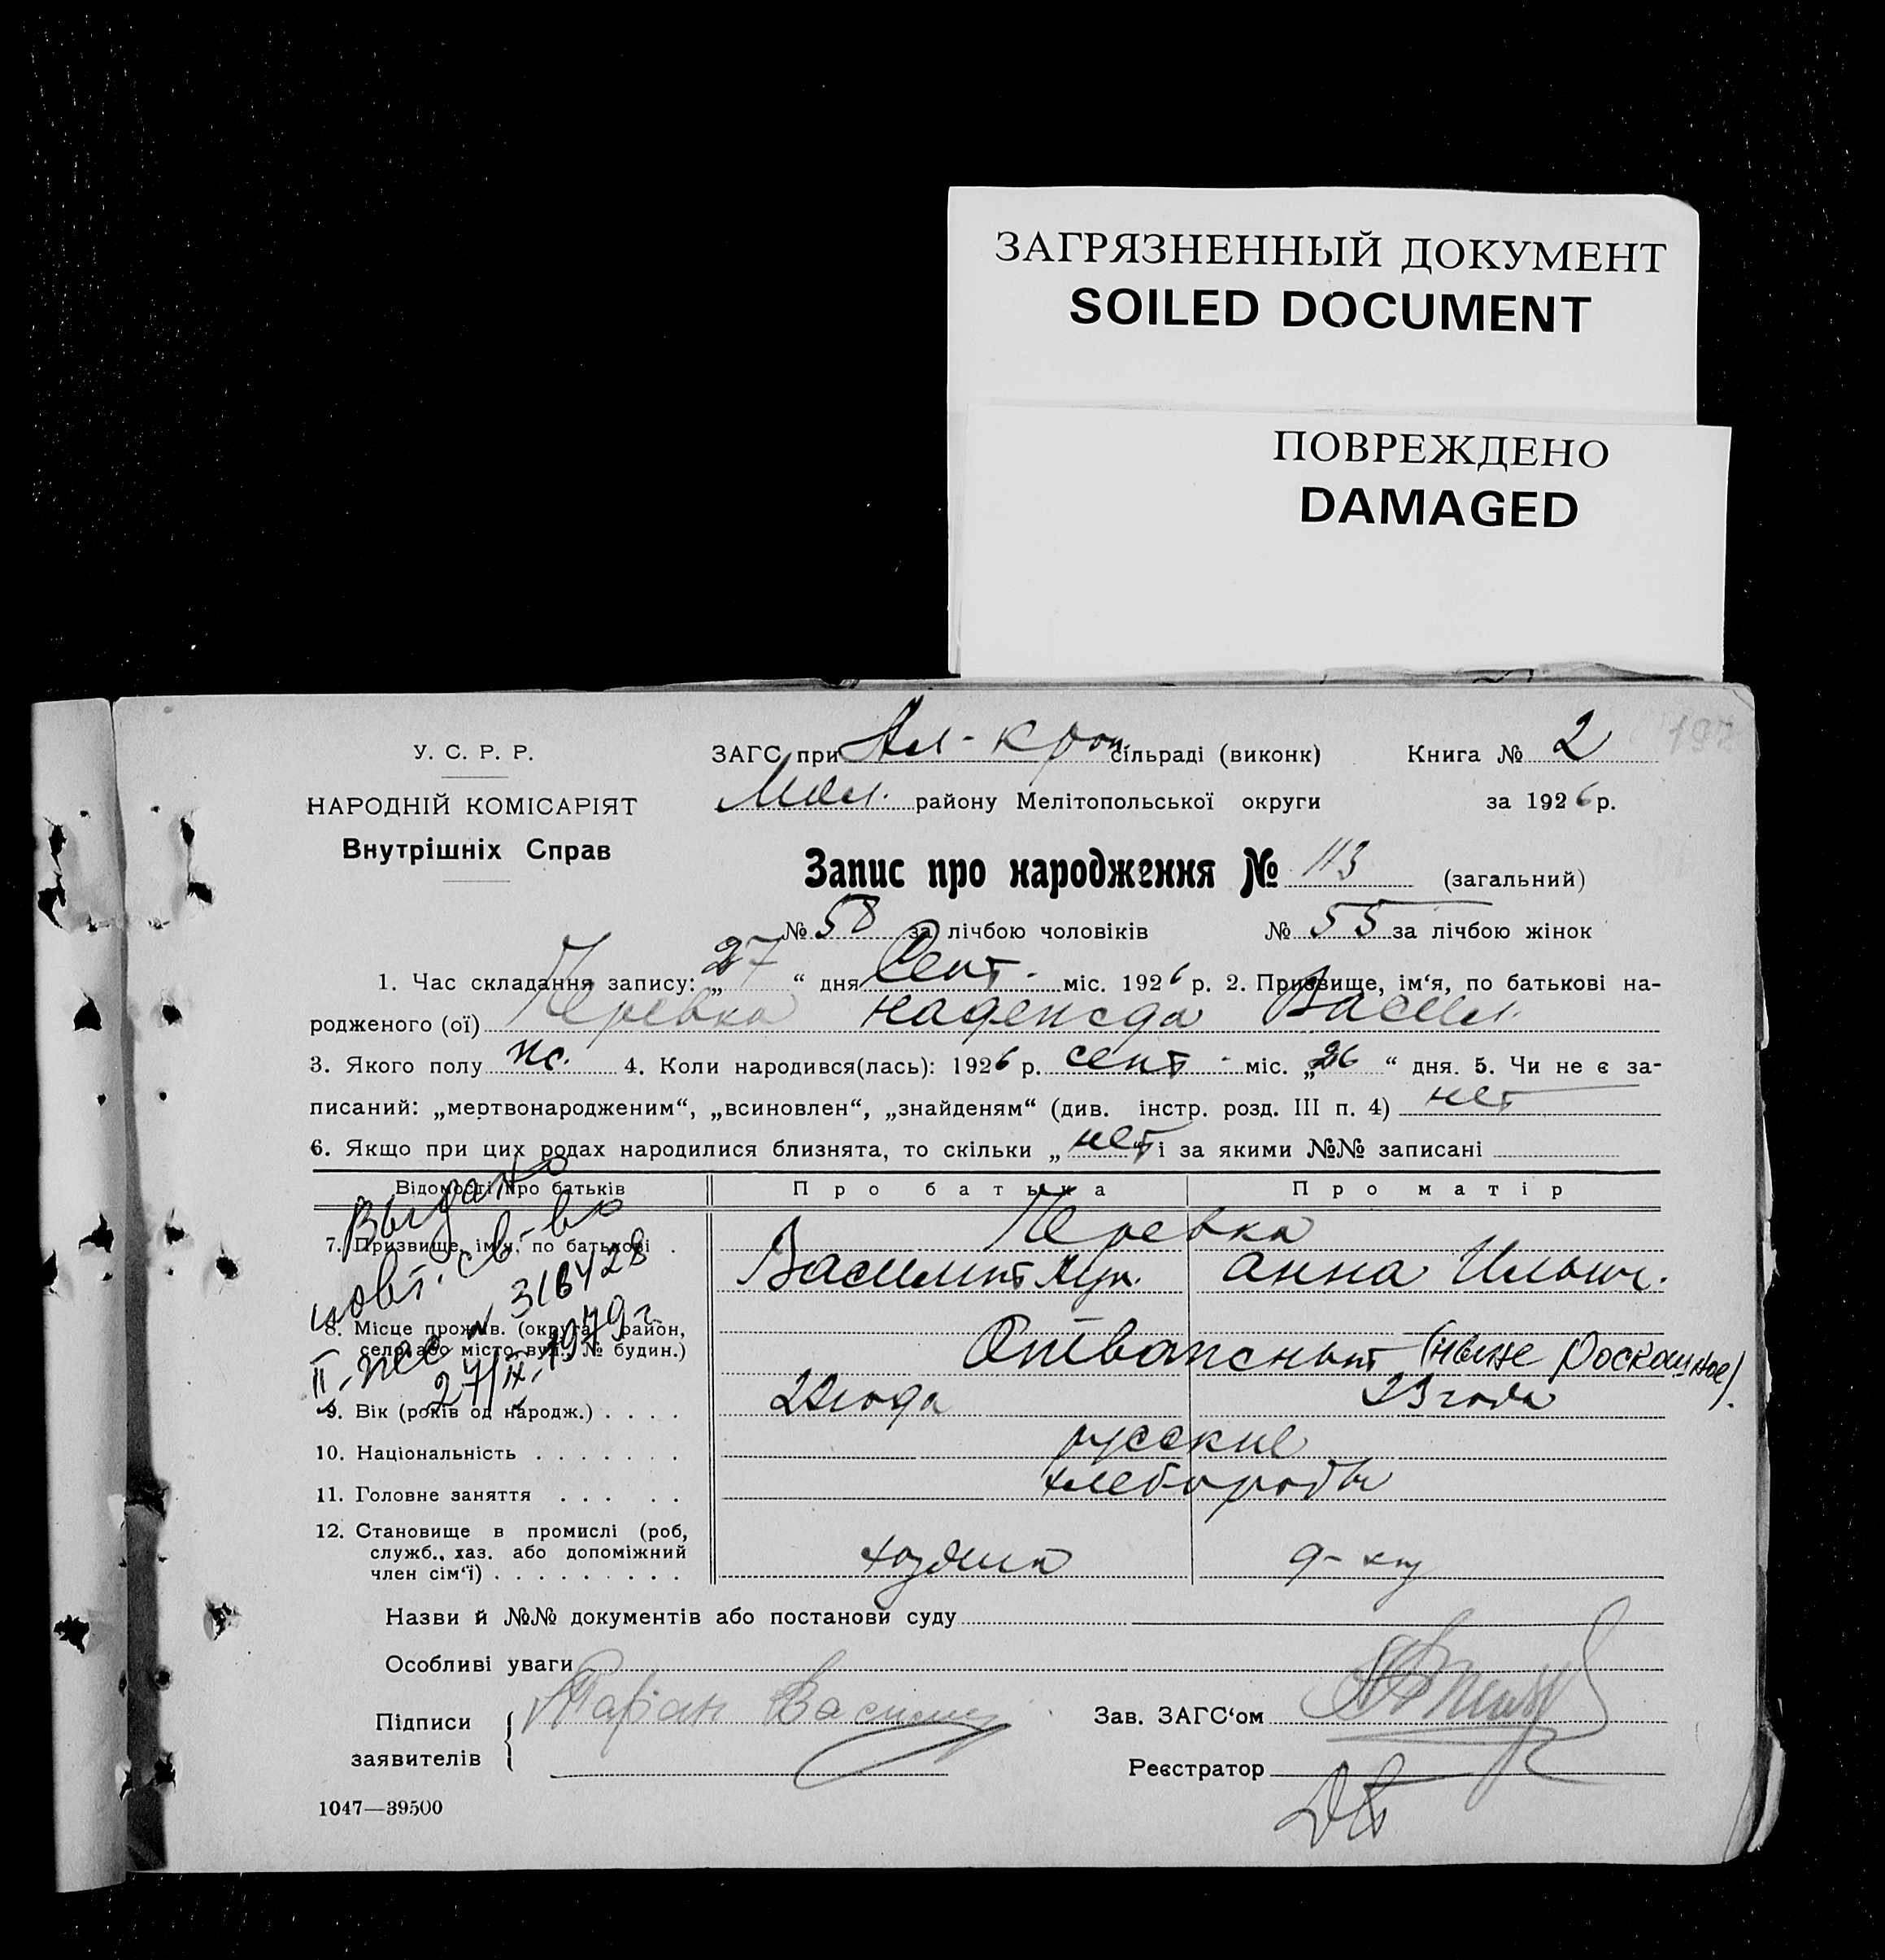 ЗАГРЯЗНЕННЫЙ ДОКУМЕНТ
SOILED DOCUMENT
ПОВРЕЖДЕНО
DAMAGED
197
У. С. Р. Р.
НАРОДНІЙ КОМІСАРІЯТ
Внутрішніх Справ
ЗАГС при сільраді (виконк) Книга № 2
району Мелітопольської округи за 1926 р.
Запис про народження № 113 (загальний)
№ 58 за лічбою чоловіків № 55 за лічбою жінок
1. Час складання запису: „27“ дня Сент. міс. 1926 р. 2. Призвище, ім‘я, по батькові на-
родженого (ої) Черевка Надежда Васил.
3. Якого полу ж. 4. Коли народився(лась): 1926 р. сент. міс. „26“ дня. 5. Чи не є за-
писаний: „мертвонародженим“, „всиновлен“, „знайденям“ (див. інстр. розд. III п. 4) нет
6. Якщо при цих родах народилися близнята, то скільки „нет“ і за якими №№ записані
Відомості про батьків Про батька Про матір
Выдано
повт. св-во
№ 316428
27/IX-1979 г.
7. Призвище, ім‘я, по батькові . Черевка
Василий Анна Ильин.
8. Місце прожив. (округа, район,
село або місто вул., № будин.) (ныне Роскошное).
9. Вік (років од народж.) . . . . 22 года 23 года
10. Національність . . . . . . . русские
11. Головне заняття . . . . . хлеборобы
12. Становище в промислі (роб,
служб., хаз. або допоміжний
член сім‘ї) . . . . . . . . . хозяин
Назви й №№ документів або постанови суду
Особливі уваги
Підписи
заявителів
Зав. ЗАГС‘ом
Реєстратор
1047—39500